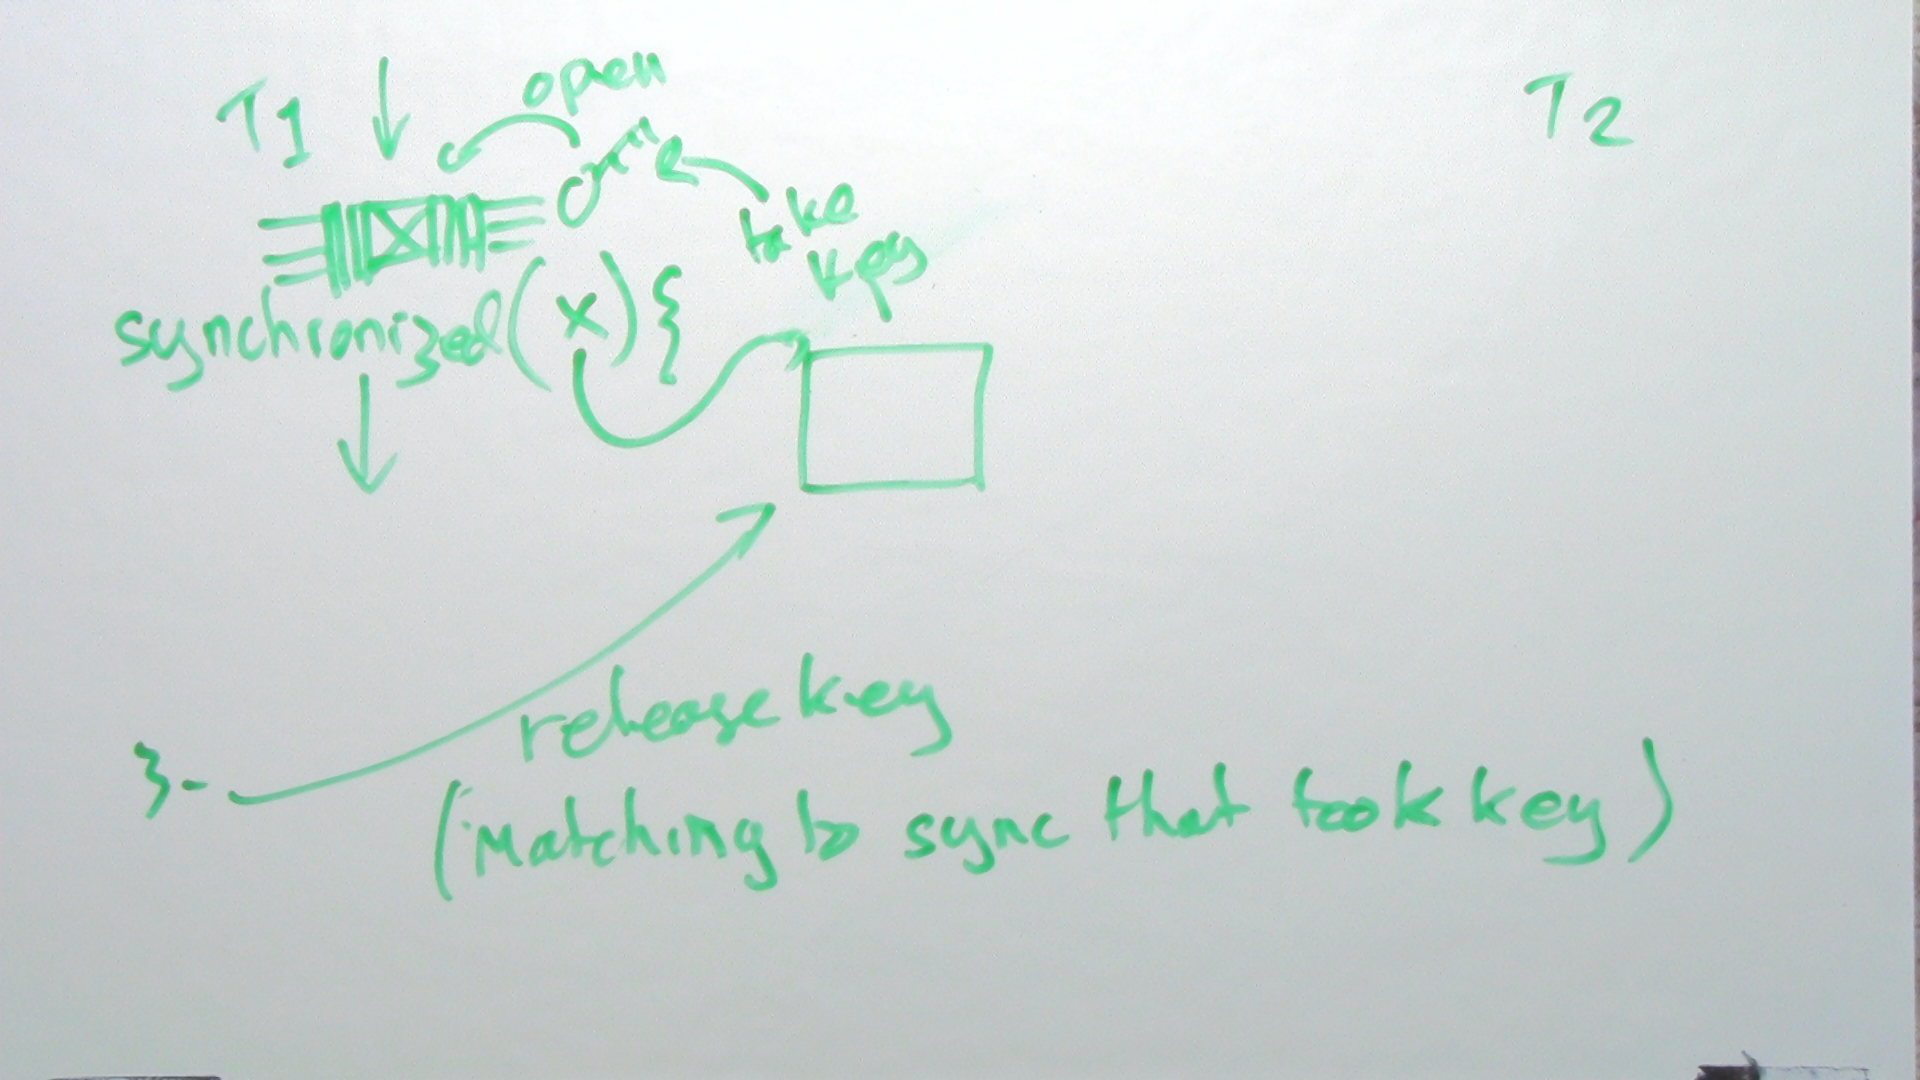 T1
open
T2
take
key
synchronized(x){
release key
}
(Matching to sync that took key)